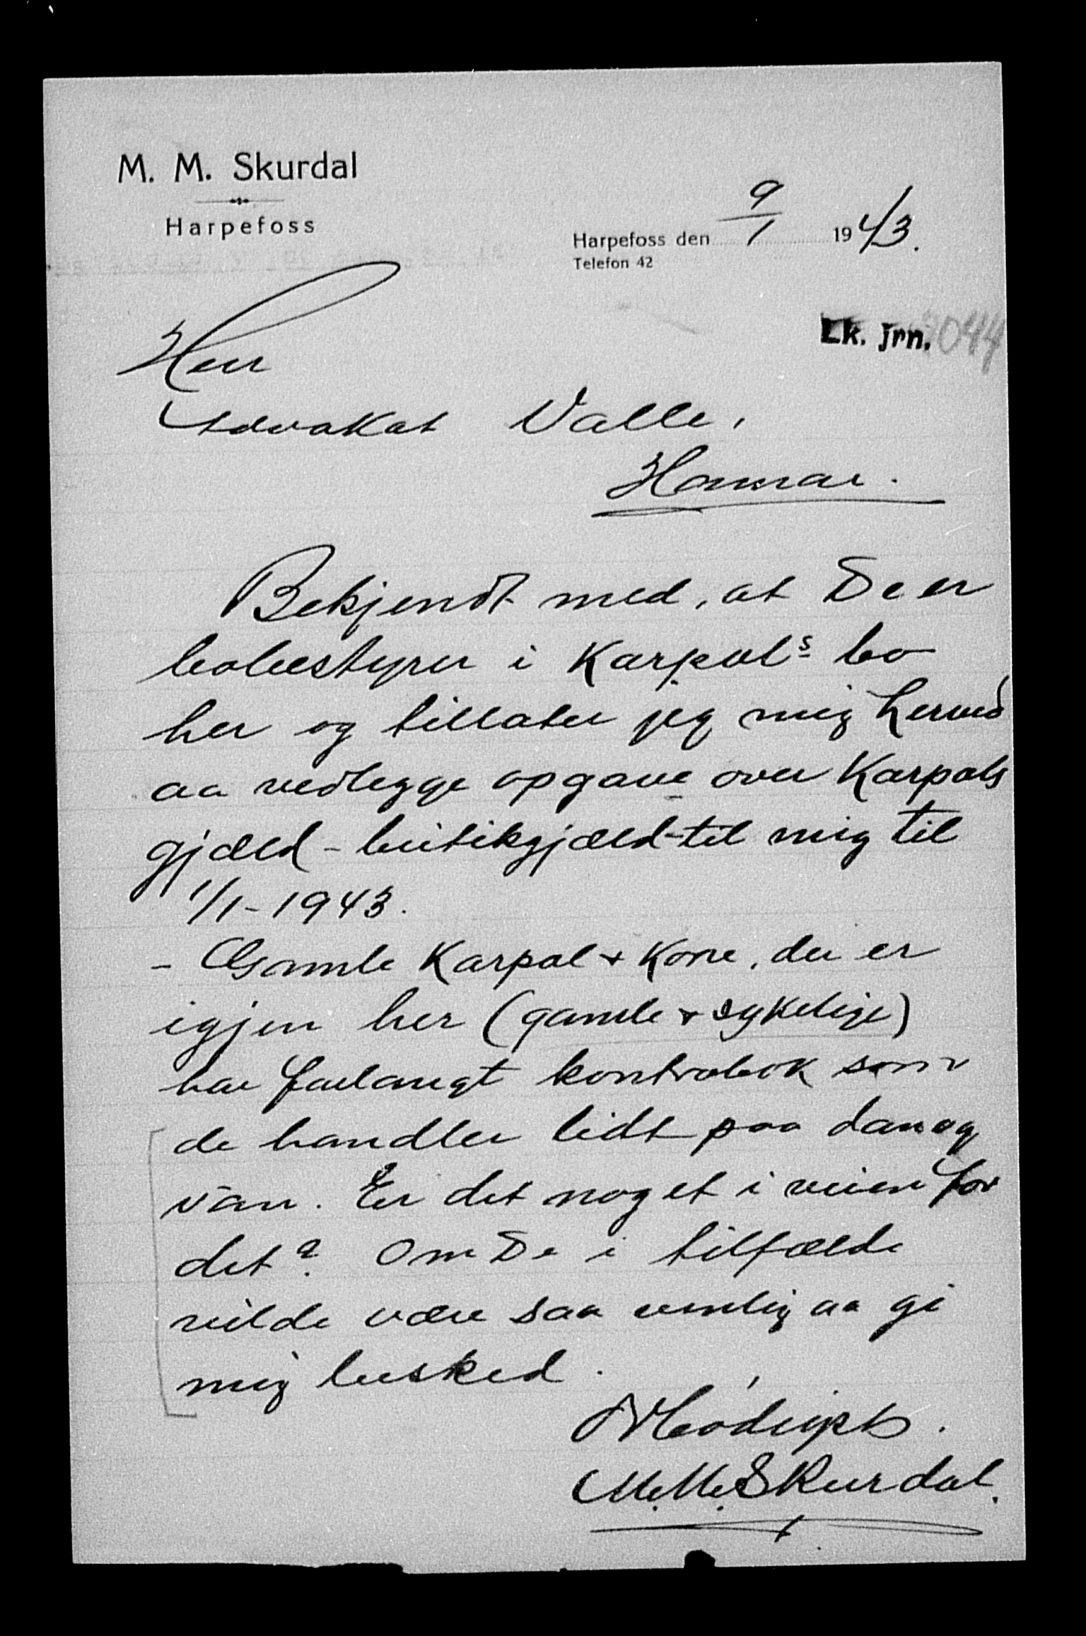 M. M. Skurdal
Harpefoss
Harpefoss den 9/1 1943.
Telefon 42
Lk. Jrn. 044
Herr
Advokat Valle,
Hamar.
Bekjendt med, at De er
bobestyrer i Karpols bo
her og tillater jeg mig herved
aa vedlegge opgave over Karpols
gjæld - butikgjæld - til mig til
1/1-1943.
- Gamle Karpol + Kone, der er
igjen her (gamle + sykelige)
har forlangt kontrabok som
de handler lidt paa dan og
van. Er det noget i veien for
det? Om De i tilfælde
vilde være saa venlig aa gi
mig besked.
Ærbødigst.
M.M. Skurdal.